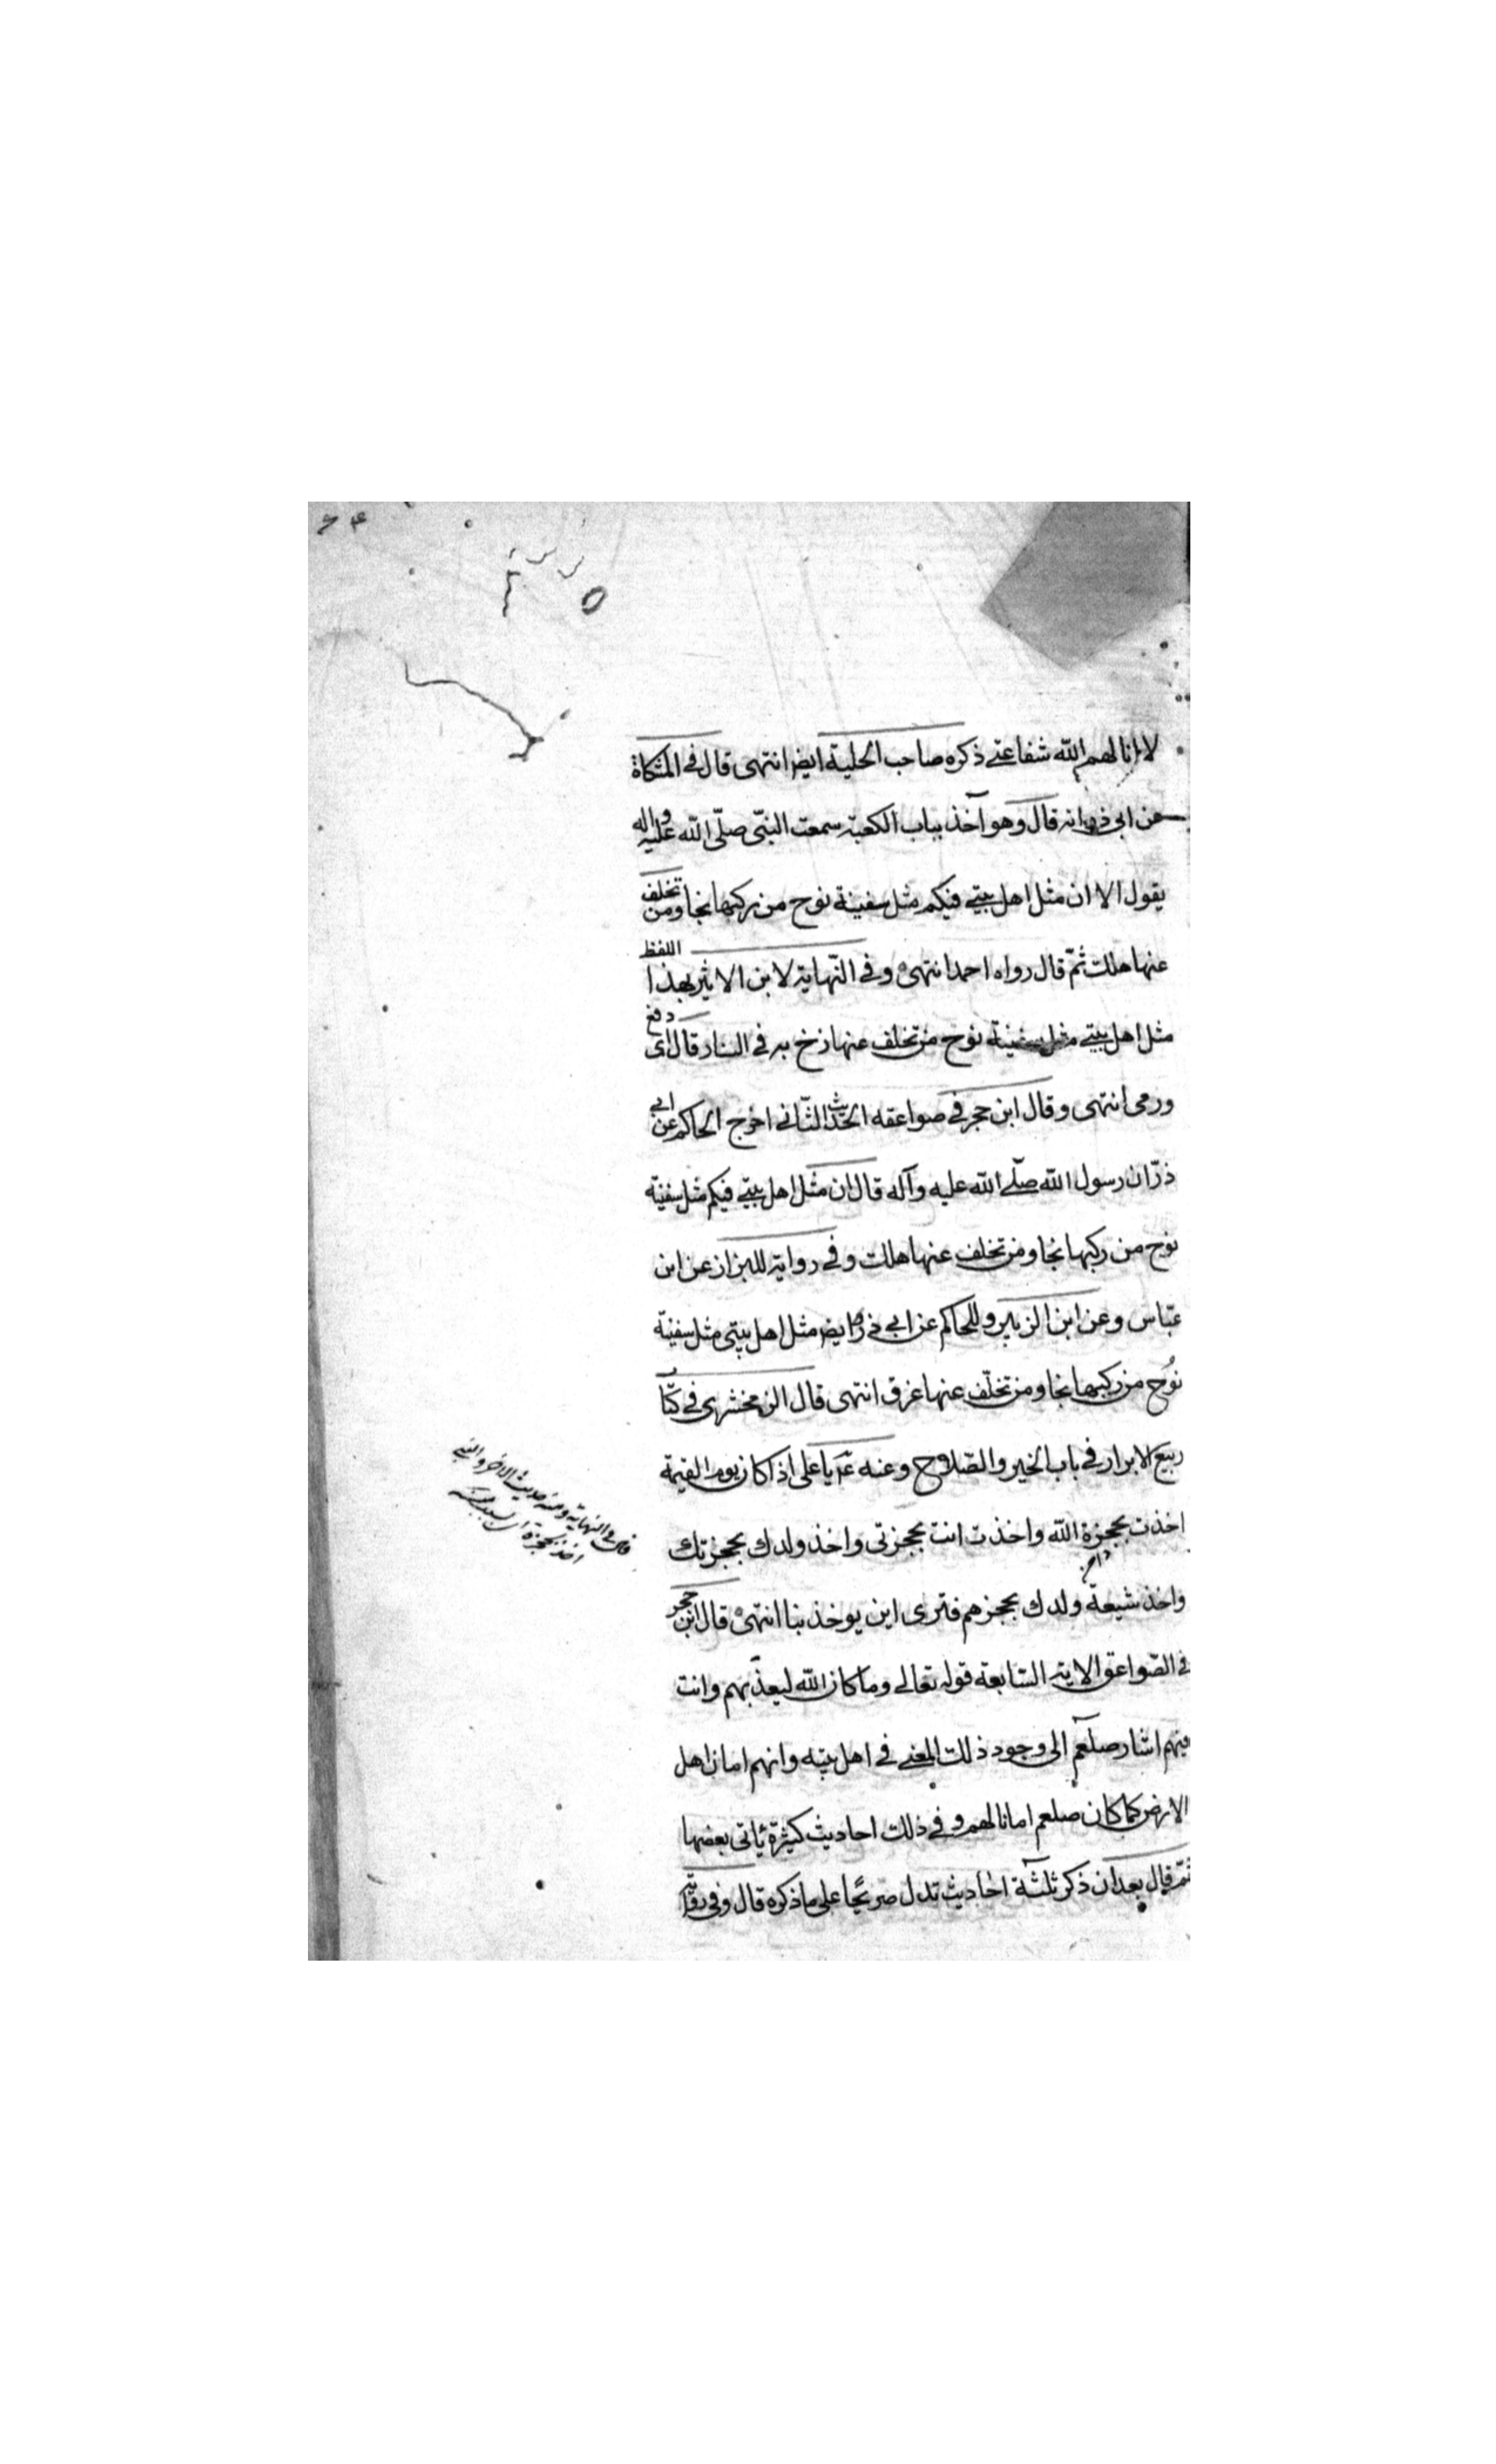 لا انا لهم الله شفاعتي ذكره صاحب الحلية ايض انتهى قال في المشكاة
عن ابي ذر انه قال وهو آخذ بباب الكعبة سمعت النبي صلّى الله عليه واله
يقول الا ان مثل اهل بيتي فيكم مثل سفينة نوح من ركبها نجا ومن تخلف
عنها هلك ثمّ قال رواه احمد انتهى وفي النّهاية لابن الاثير بهذا اللفظ
مثل اهل بيتي مثل سفينة نوح من تخلف عنها زخ به في النار قال اى دفع
ورمى انتهى وقال ابن حجر في صواعقه الحديث الثّاني اخرج الحاكم عن ابي
ذرّ ان رسول الله صلّى الله عليه وآله قال ان مثل اهل بيتي فيكم مثل سفينة
نوح من ركبها نجا ومن تخلف عنها هلك وفي رواية للبزاز عن ابن
عبّاس وعن ابن الزبير وللحاكم عن ابي ذر ايض مثل اهل بيتي مثل سفينة
نُوح من ركبها نجا ومن تخلّف عنها غرق انتهى قال الزمخشرى في كتا
ربيع الابرار في باب الخير والصّلاح وعنه عم يا على اذا كان يوم القيمة
اخذت بحجزة الله واخذت انت بحجزتى واخذ ولدك بحجزتك
واخذ شيعة ولدك بحجزهم فترى اين يوخذ بنا انتهى قال ابن حجر
في الصّواعق الاية السّابعة قوله تعالى وما كان الله ليعذّبهم وانت
فيهم اشار صلعم الى وجود ذلك المعنى في اهل بيته وانهم امان اهل
الارض كما كان صلعم امانا لهم وفي ذلك احاديث كثيرة يأتى بعضها
ثمّ قال بعد ان ذكر ثلثة احاديث تدل صريحًا على ما ذكره قال وفي رواية
قال في النهاية ومنه حديث الاخر والنبي
اخذ بحجزة